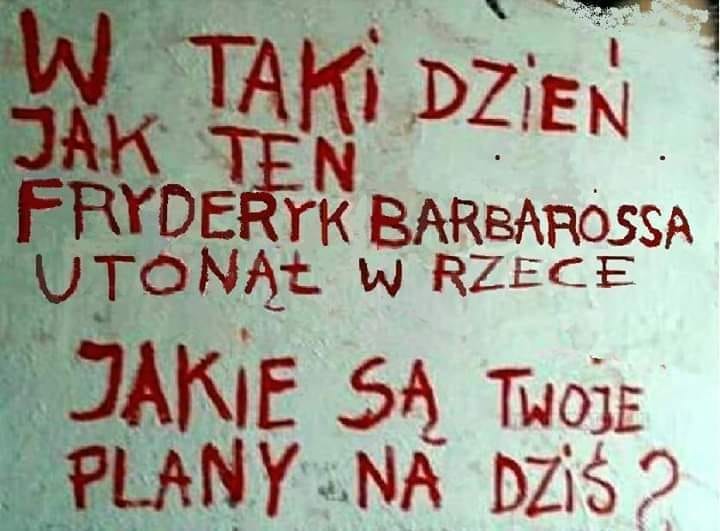 W TAKi DZiEŃ
JAK TEN
FRYDERYK BARBAROSSA
UTONĄŁ W RZECE
JAKiE SĄ TWOJE
PLANY NA DZiŚ?